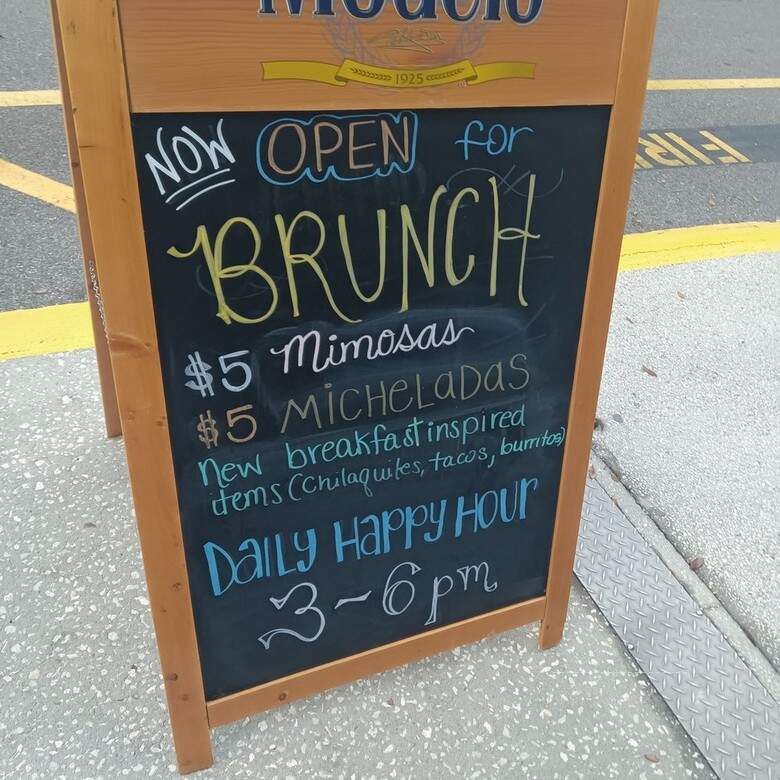 Modelo
1925
NOW OPEN for
BRUNCH
$5 Mimosas
$5 MICHELADAS
New breakfast inspired
items (Chilaquiles, tacos, burritos)
Daily Happy Hour
3-6pm
FIR